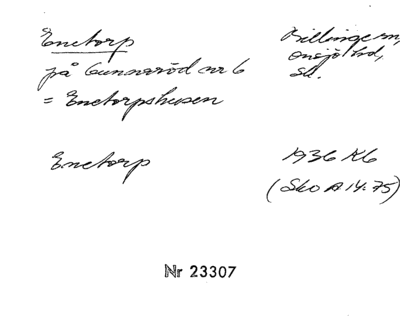 Enetorp
Billinge sn,
på Gunnaröd nr 6
Onsjö hd,
Sk.
= Enetorpshusen
Enetorp
1936 K6
(Sko A 14:75)
Nr 23307